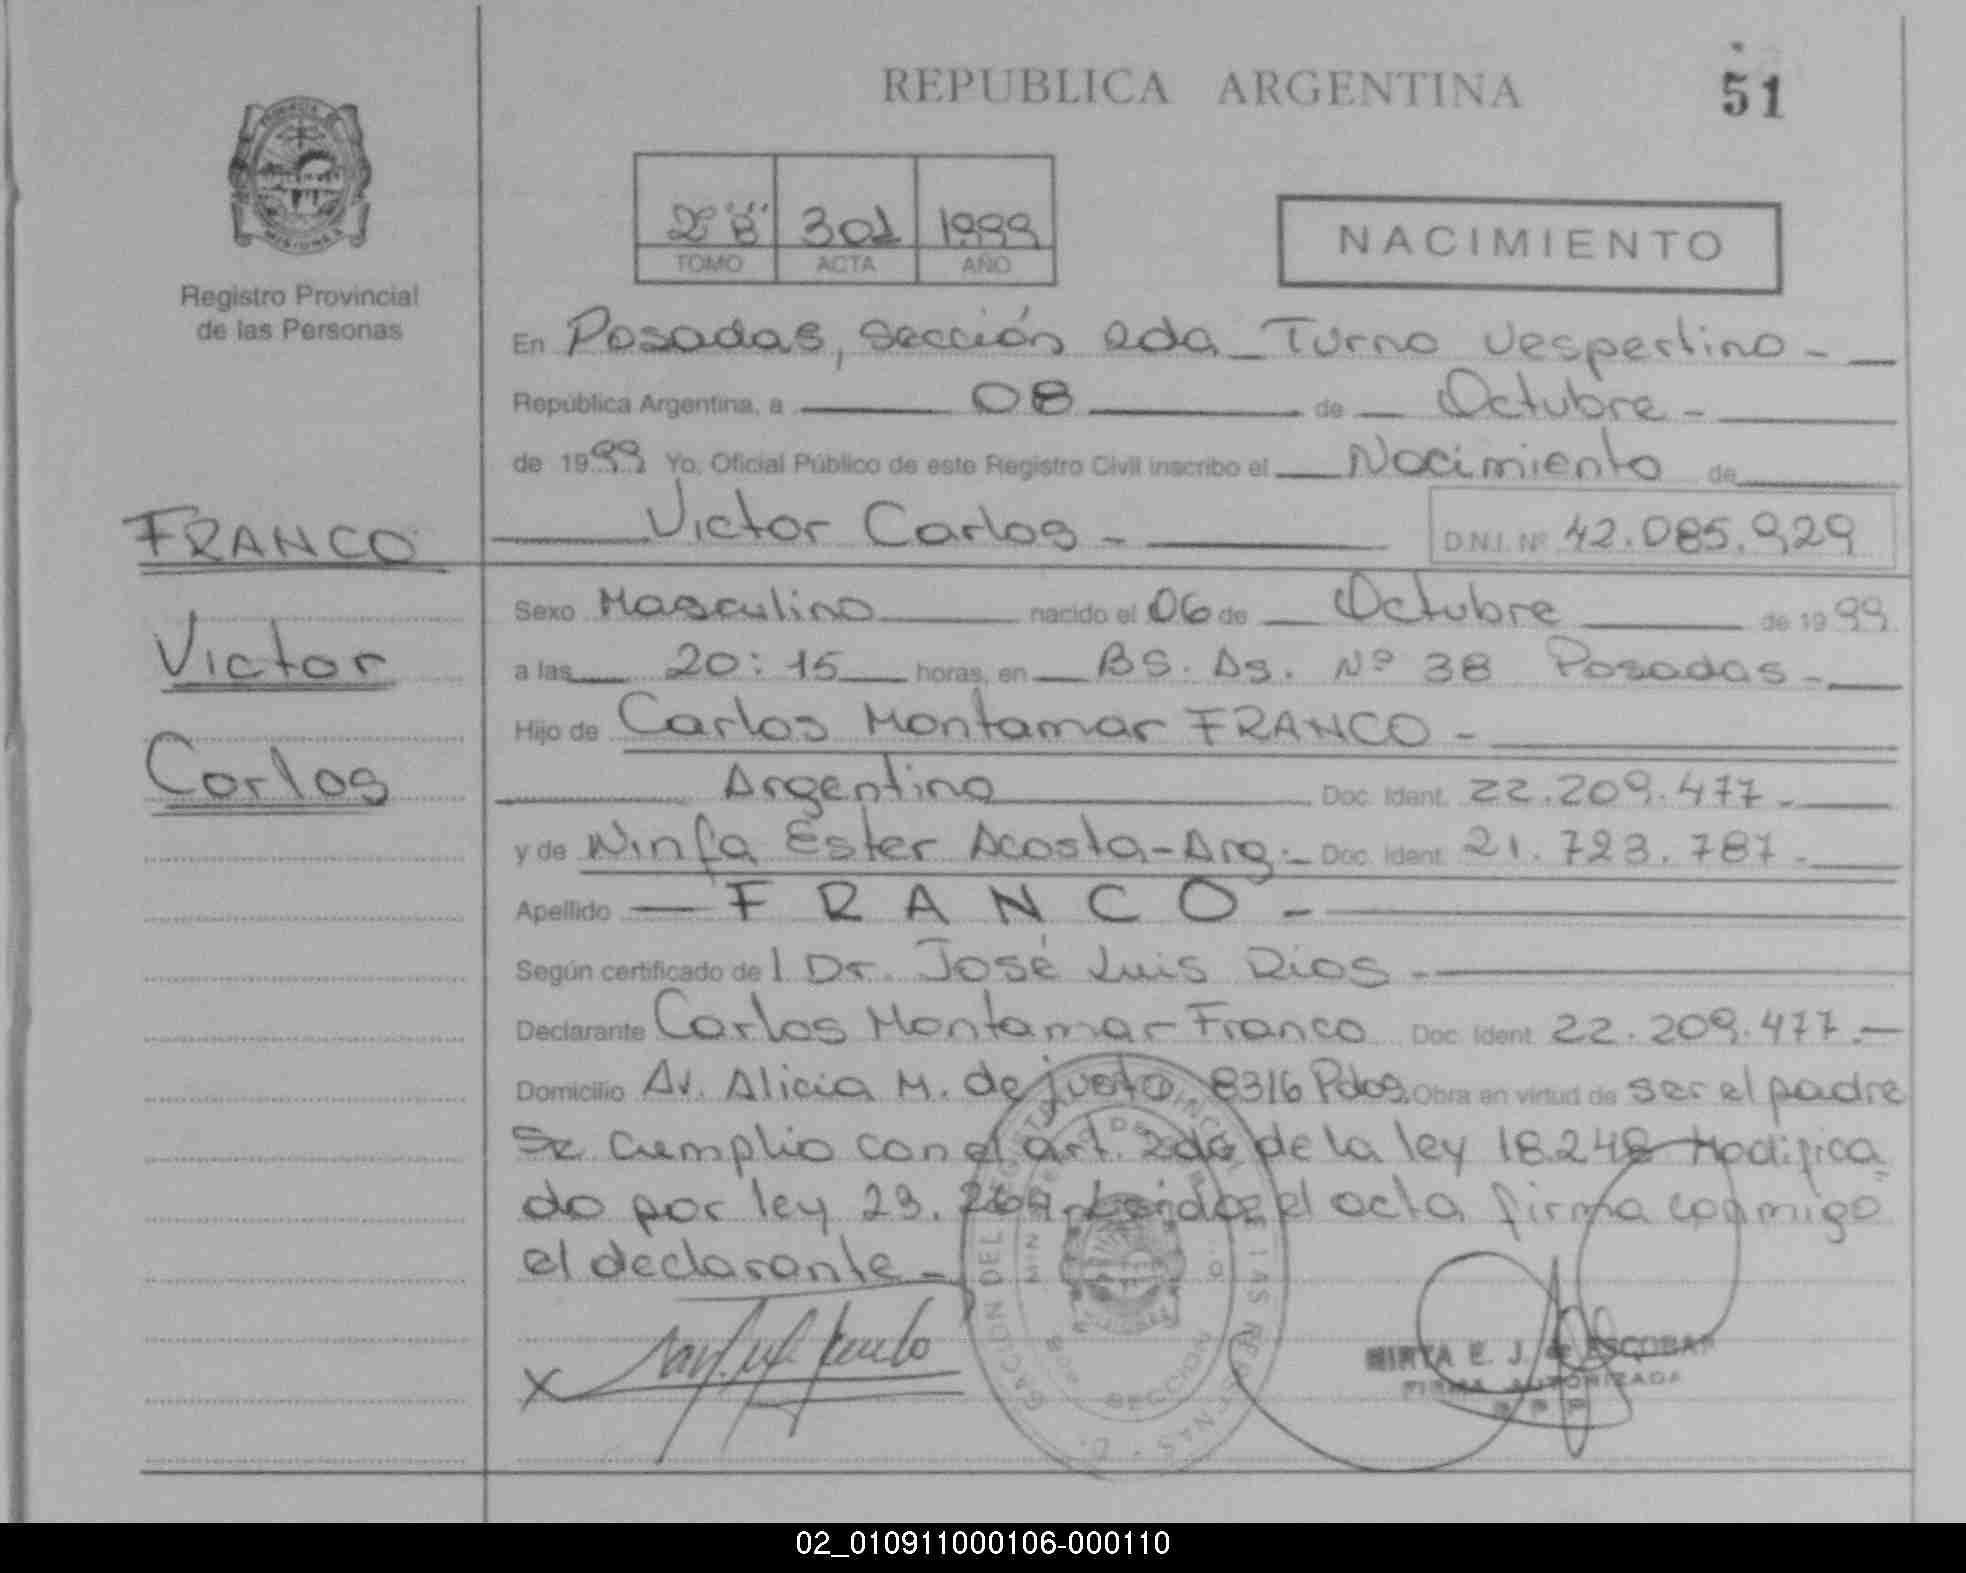 REPUBLICA ARGENTINA
51
2º "B" 301 1999
TOMO ACTA AÑO
NACIMIENTO
PROVINCIA
MISIONES
Registro Provincial
de las Personas
FRANCO
Victor
Carlos
En Posadas, Sección 2da - Turno Vespertino -
República Argentina, a 08 de Octubre -
de 1999 Yo, Oficial Público de este Registro Civil inscribo el Nacimiento de
Victor Carlos - D.N.I. Nº 42.085.929
Sexo Masculino nacido el 06 de Octubre de 1999
a las 20:15 horas, en BS. As. Nº 38 Posadas -
Hijo de Carlos Montamar FRANCO -
Argentino Doc. Ident. 22.209.477 -
y de Ninfa Ester Acosta - Arg. - Doc. Ident. 21.723.787 -
Apellido - FRANCO -
Según certificado del Dr. José Luis Rios -
Declarante Carlos Montamar Franco Doc. Ident. 22.209.477.-
Domicilio Av. Alicia M. de justo 8316 Pdas. Obra en virtud de ser el padre
Se cumplio con el art. 2do de la ley 18.248 Modifica
do por ley 23. Leida el acta firma conmigo
el declarante -
X
MIRTA E. J. de ESCOBAR
FIRMA AUTORIZADA
R P P
SECCION
02_010911000106-000110